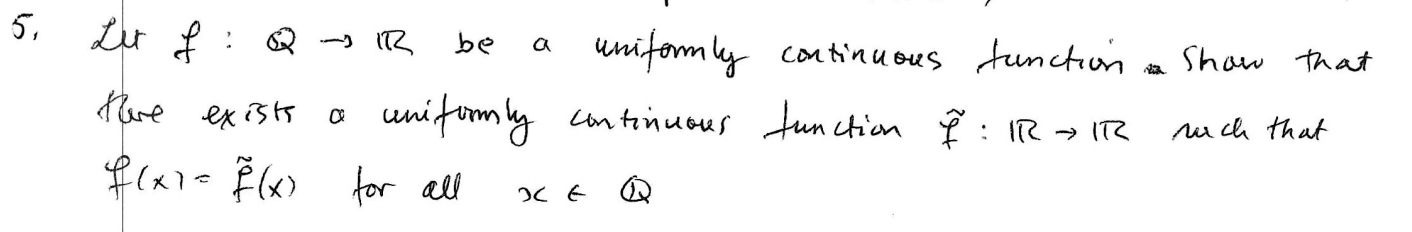 5. Let f : ℚ → ℝ be a uniformly continuous function. Show that
there exists a uniformly continuous function f̃ : ℝ → ℝ such that
f(x) = f̃(x) for all x ∈ ℚ